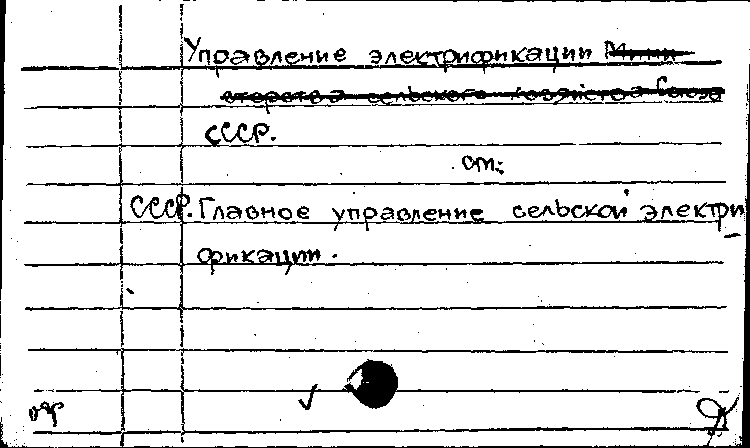 Управление электрификации Мини-
стерства сельского хозяйства Союза
СССР.
см:
СССР. Главное управление сельской электри-
фикации.